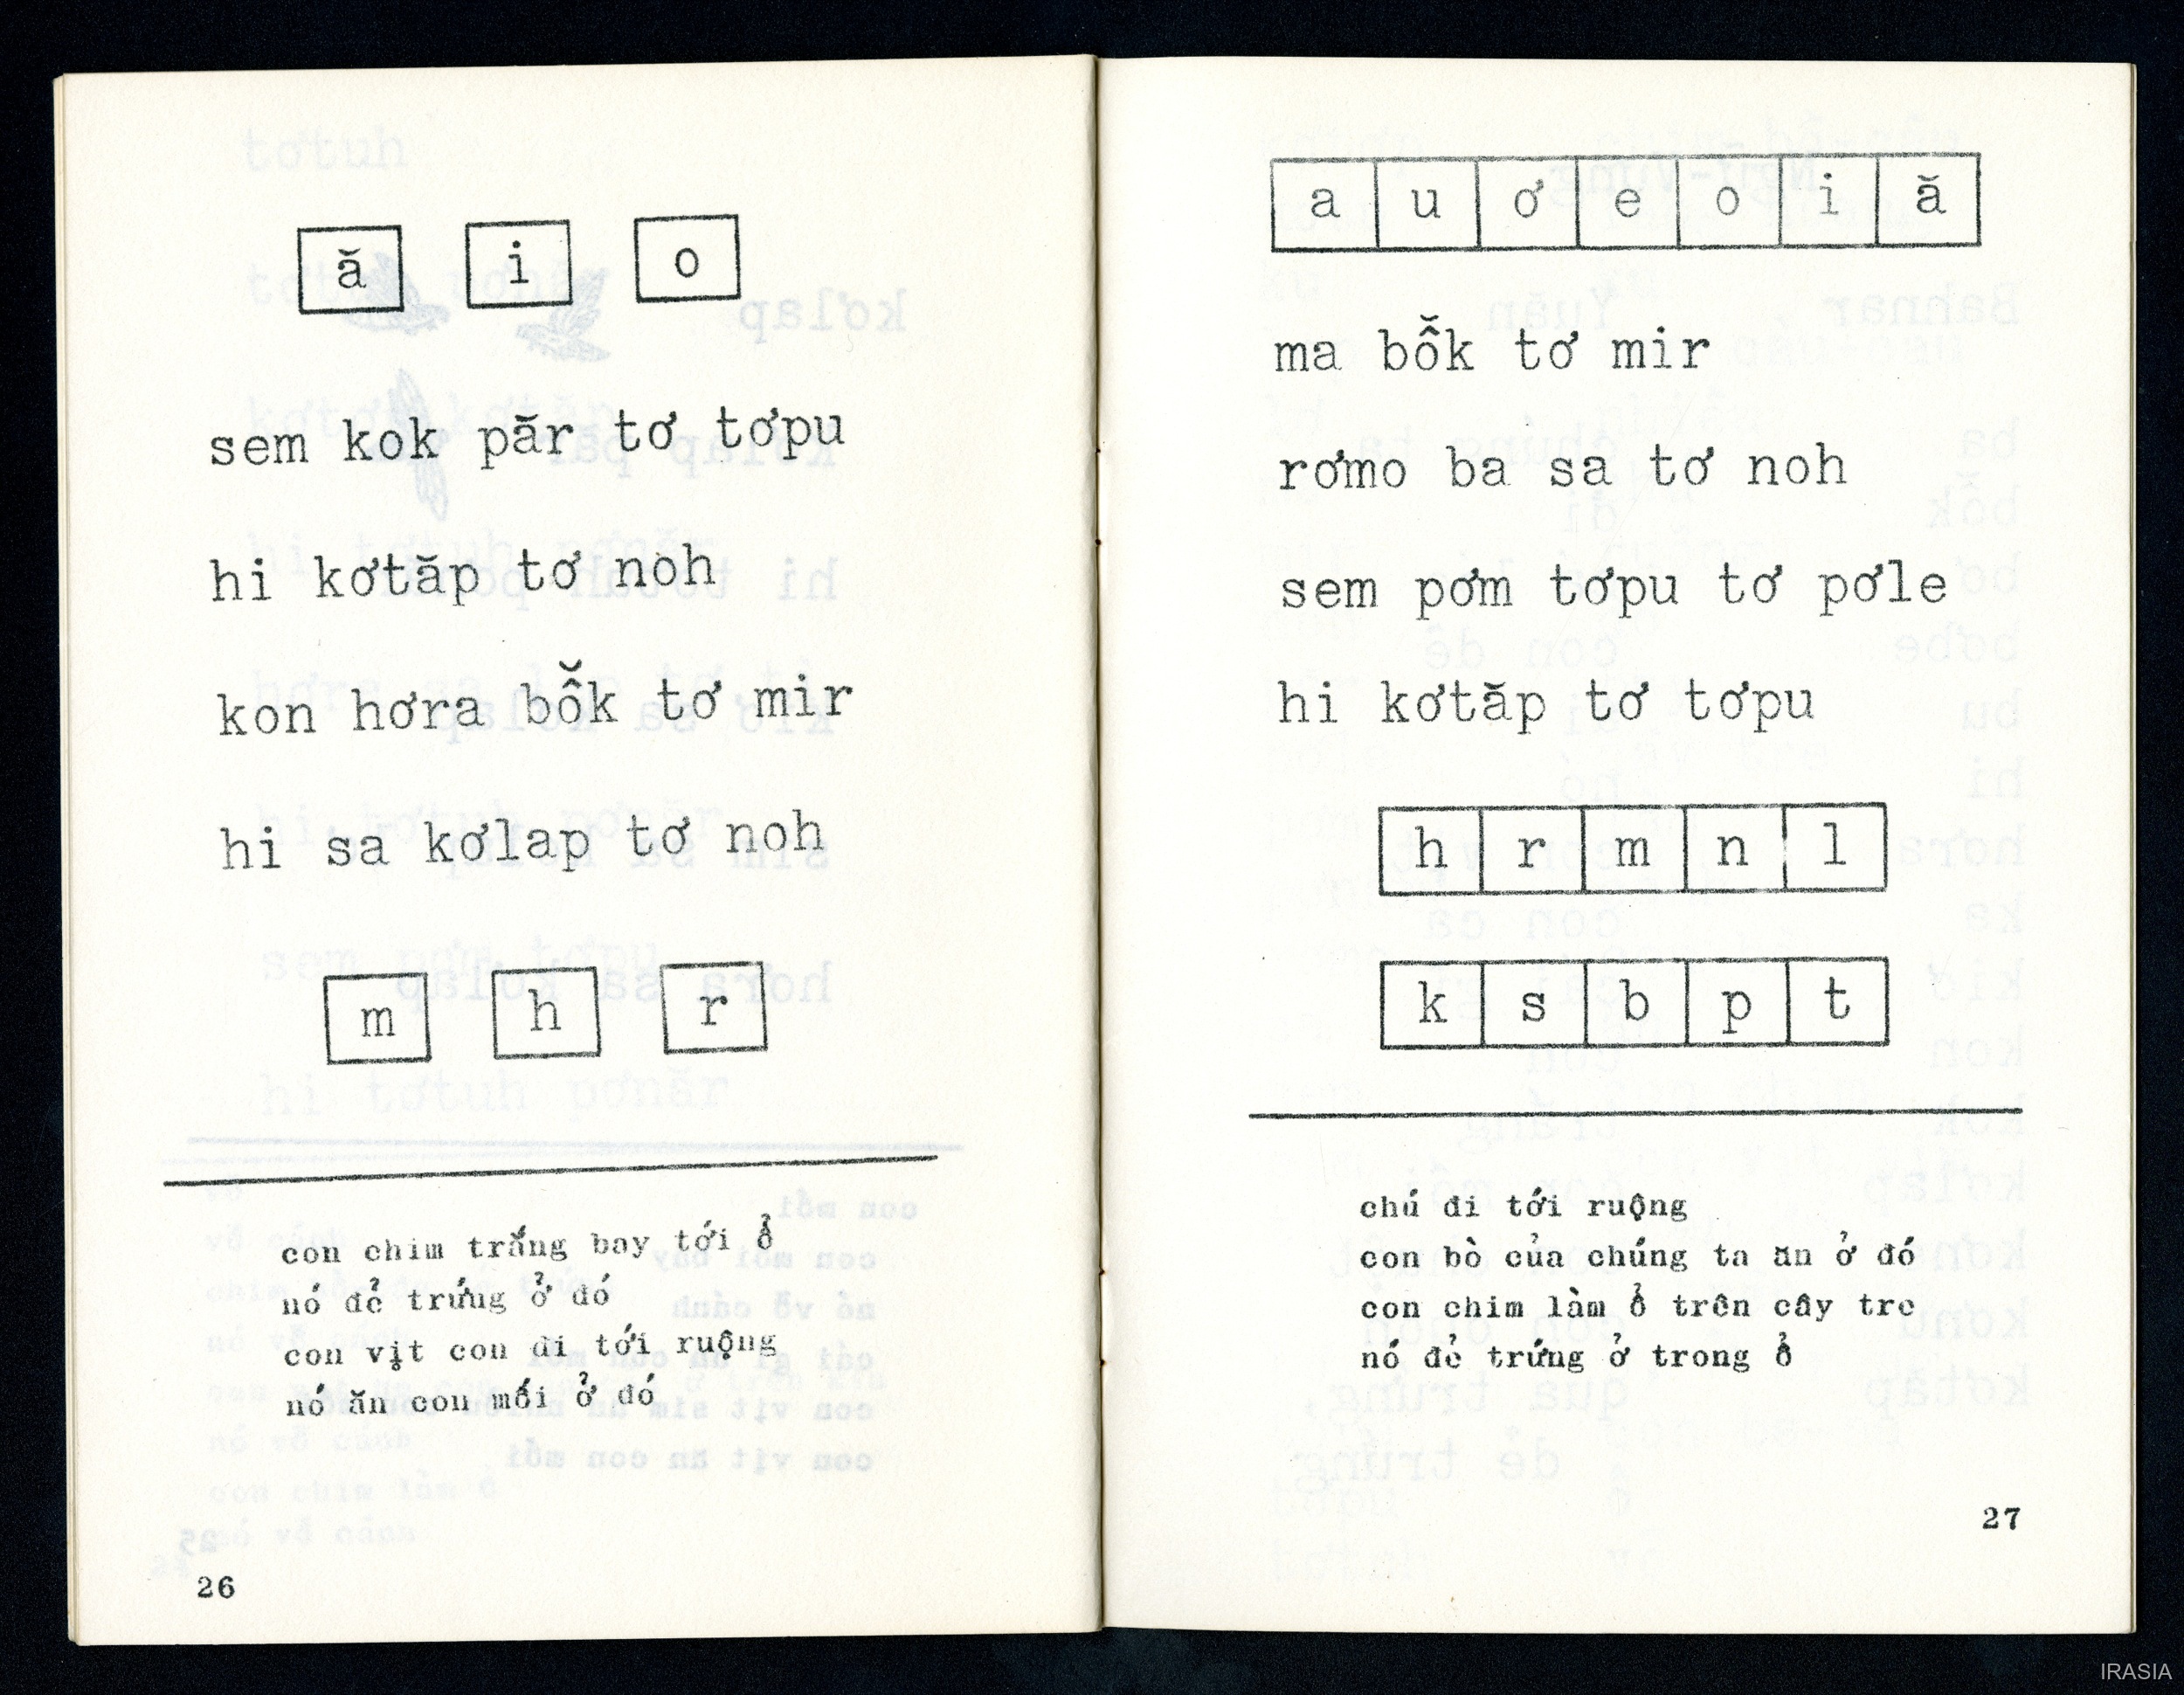 ă i o
sem kok păr tơ tơpu
hi kơtăp tơ noh
kon hơra bô̆k tơ mir
hi sa kơlap tơ noh
m h r
con chim trắng bay tới ổ
nó đẻ trứng ở đó
con vịt con đi tới ruộng
nó ăn con mối ở đó
26
a u ơ e o i ă
ma bô̆k tơ mir
rơmo ba sa tơ noh
sem pơm tơpu tơ pơle
hi kơtăp tơ tơpu
h r m n l
k s b p t
chú đi tới ruộng
con bò của chúng ta ăn ở đó
con chim làm ổ trên cây tre
nó đẻ trứng ở trong ổ
27
IRASIA